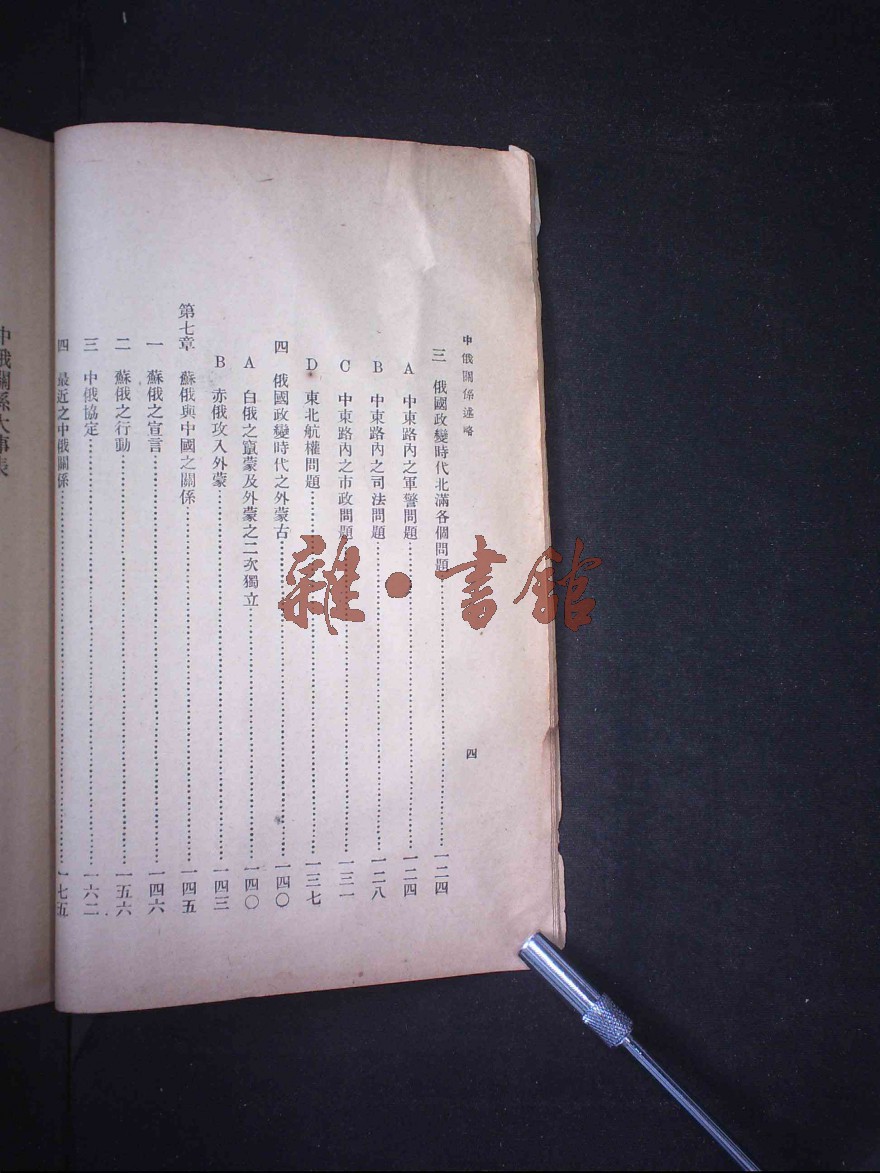 中俄關係述略
四
三 俄國政變時代北滿各個問題……一二四
A 中東路內之軍警問題……一二四
B 中東路內之司法問題……一二八
C 中東路內之市政問題……一三一
D 東北航權問題……一三七
四 俄國政變時代之外蒙古……一四〇
A 白俄之竄蒙及外蒙之二次獨立……一四〇
B 赤俄攻入外蒙……一四三
第七章 蘇俄與中國之關係……一四五
一 蘇俄之宣言……一四六
二 蘇俄之行動……一五六
三 中俄協定……一六二
四 最近之中俄關係……一七五
中俄關係大事表
雜·書館